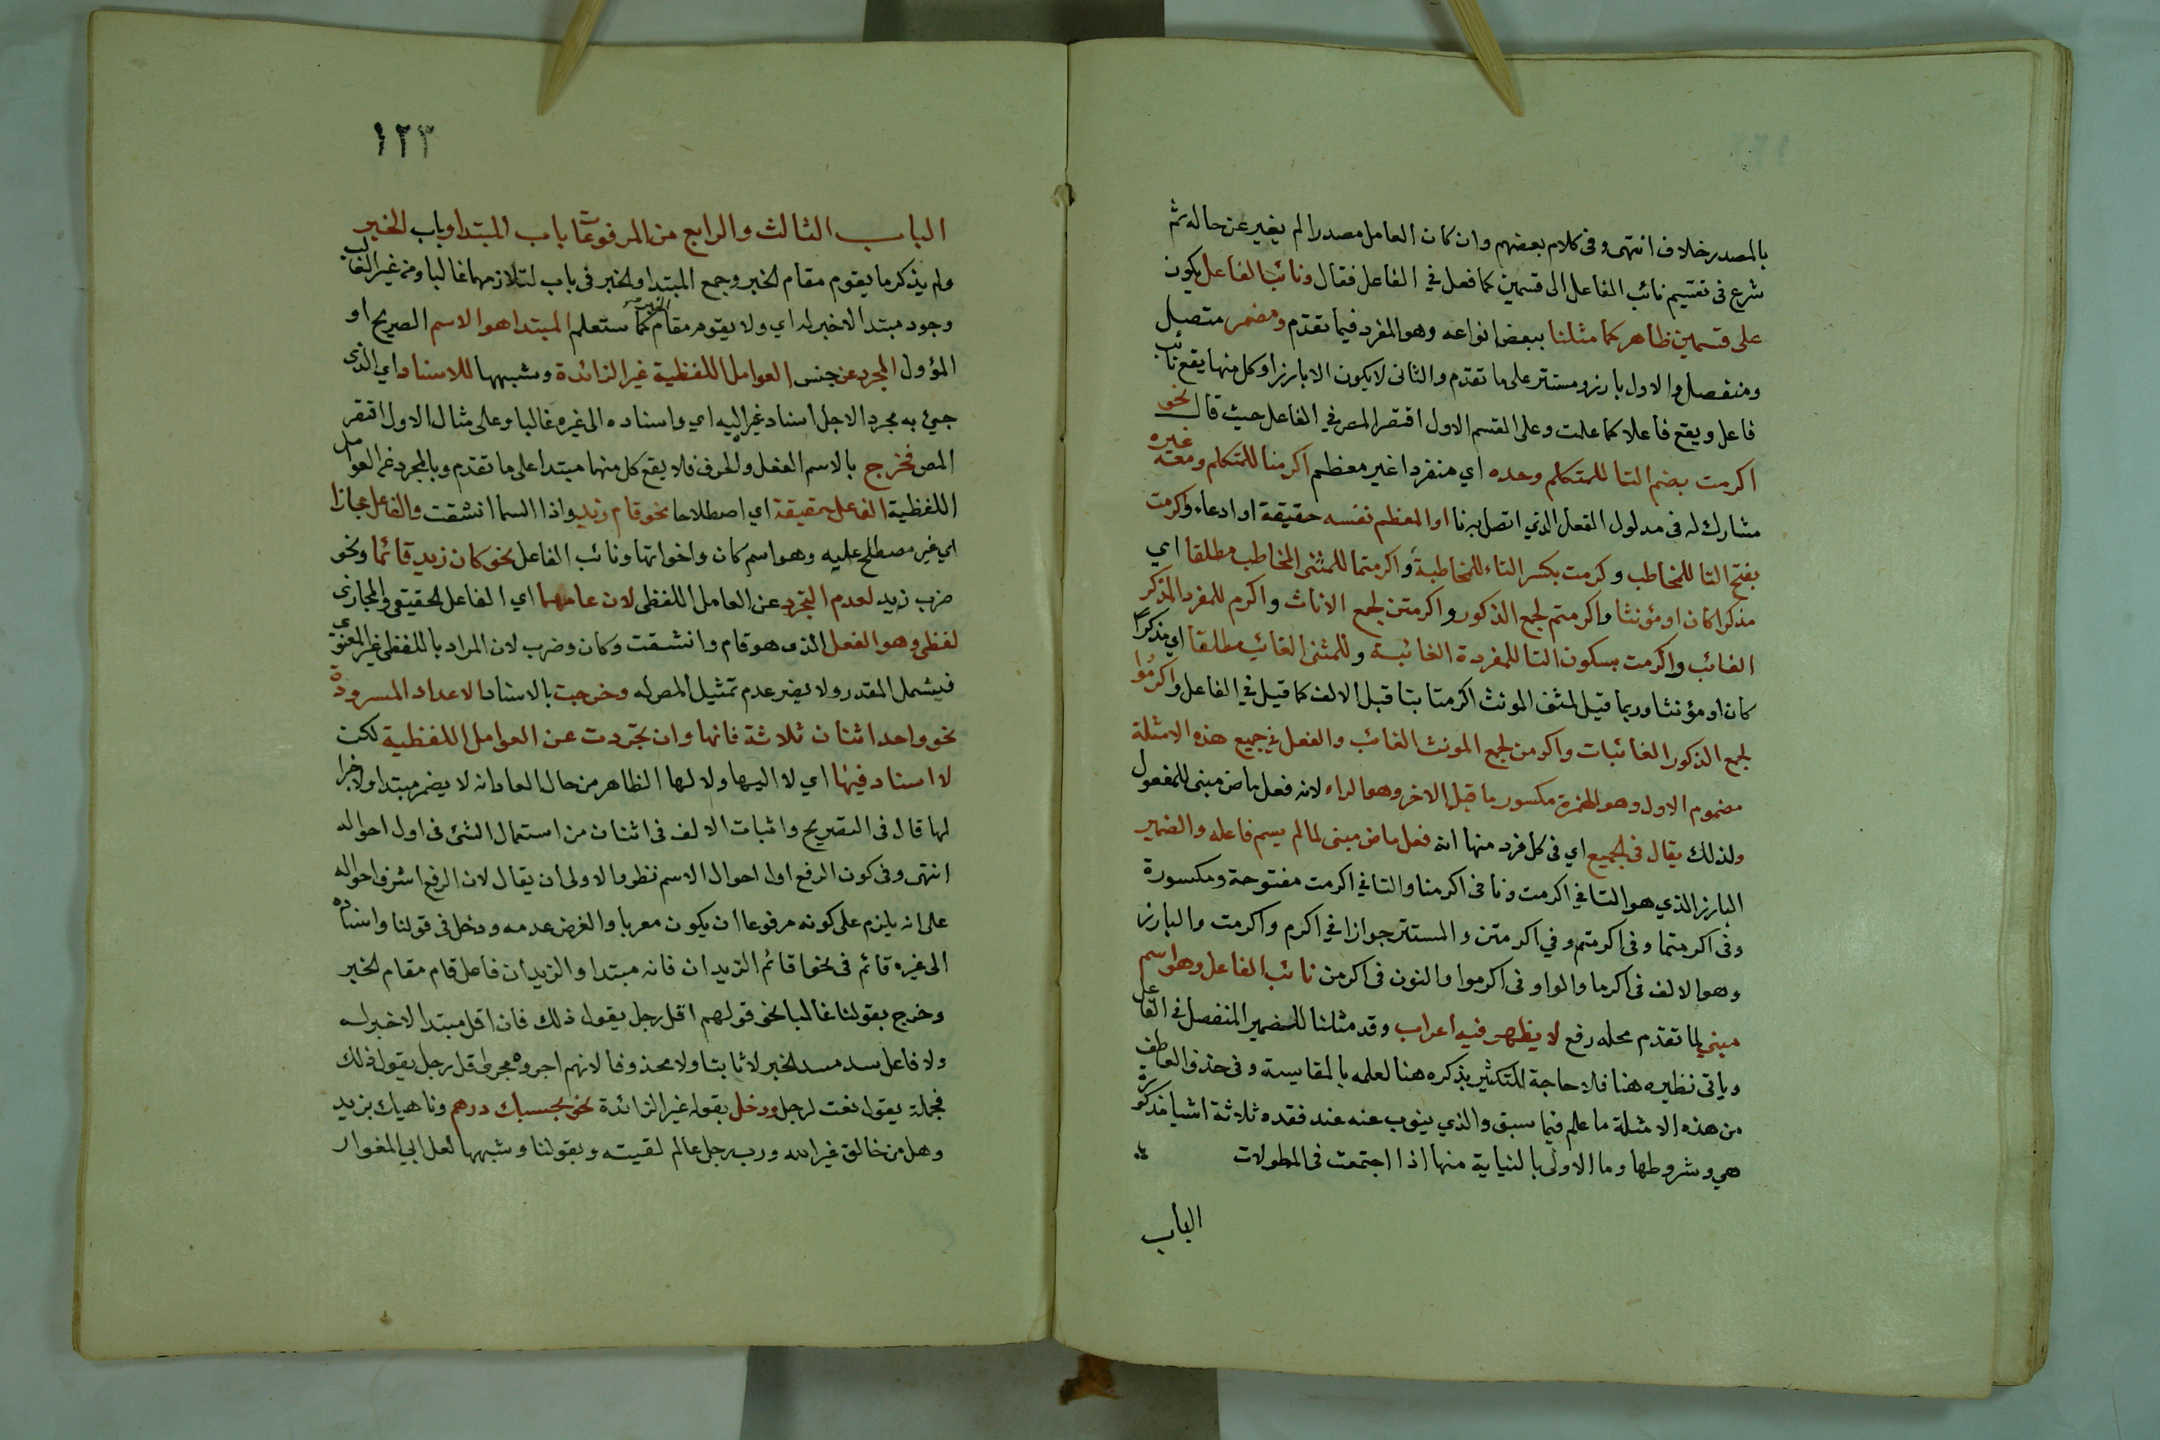 بالمصدر خلاف انتهى وفى كلام بعضهم وان كان العامل مصدرا لم يغير عن حاله ثم
شرع فى تقسيم نائب الفاعل الى قسمين كما فعل في الفاعل فقال ونائب الفاعل يكون
على قسمين ظاهر كما مثلنا ببعض انواعه وهو المفرد فيما تقدم ومضمر متصل
ومنفصل والاول بارز ومستتر على ما تقدم والثانى لا يكون الا بارزا وكل منها يقع نائب
فاعل ويقع فاعلا كما علمت وعلى القسم الاول اقتصر المعر في الفاعل حيث قال نحو
اكرمت بضم التا للمتكلم وحده اي منفردا غير معظم اكرمنا للمتكلم ومعه غيره
مشارك له فى مدلول الفعل الذي اتصل به نا او المعظم نفسه حقيقة او ادعاء واكرمت
بفتح التا للمخاطب وكرمت بكسر التاء للمخاطبة واكرمتما للمثنى المخاطب مطلقا اي
مذكرا كان او مؤنثا واكرمتم لجمع الذكور واكرمتن لجمع الاناث واكرم للمفرد المذكر
الغائب واكرمت بسكون التا للمفردة الغائبة وللمثنى الغائب مطلقا اي مذكرا
كان او مؤنثا وربما قيل لمثنى المونث اكرمتا بتا قبل الالف كما قيل في الفاعل واكرموا
لجمع الذكور الغائبات واكرمن لجمع المونث الغائب والفعل في جميع هذه الامثلة
مضموم الاول وهو الهمزة مكسور ما قبل الاخر وهو الراء لانه فعل ماض مبنى للمفعول
ولذلك يقال فى الجميع اي فى كل فرد منها انه فعل ماض مبنى لما لم يسم فاعله والضمير
البارز الذي هو التا في اكرمت ونا فى اكرمنا والتا في اكرمت مفتوحة ومكسورة
وفى اكرمتما وفى اكرمتم وفي اكرمتن والمستتر جوازا في اكرم واكرمت والبارز
وهو الالف فى اكرما والواو فى اكرموا والنون فى اكرمن نائب الفاعل وهو اسم
مبني لما تقدم محله رفع لا يظهر فيه اعراب وقد مثلنا للضمير المنفصل في الفاعل
وياتى نظيره هنا فلا حاجة للتكثير بذكره هنا لعلمه بالمقايسة وفى حذف العاطف
من هذه الامثلة ما علم فيما سبق والذي ينوب عنه عند فقده ثلاثة اشيا مذكورة
هي وشروطها وما الاولى بالنيابة منها اذا اجتمعت فى المطولات
الباب
١٢٣
الباب الثالث والرابع من المرفوعات باب المبتدا وباب الخبر
ولم يذكر ما يقوم مقام الخبر وجمع المبتدا والخبر فى باب لتلازمهما غالبا ومن غير الغالب
وجود مبتدا لا خبر له اي ولا يقوم مقام الخبر كما ستعلم المبتدا هو الاسم الصريح او
المؤول المجرد عن جنس العوامل اللفظية غير الزائدة وشبهها للاسناد اي الذى
جيئ به مجردا لاجل اسناد غير اليه اي واسناده الى غيره غالبا وعلى مثال الاول اقتصر
المص فخرج بالاسم الفعل والحرف فلا يقع كل منهما مبتدا على ما تقدم وبالمجرد عن العوامل
اللفظية الفاعل حقيقة اي اصطلاحا نحو قام زيد واذا السما انشقت والفاعل مجازا
اي غير مصطلح عليه وهو اسم كان واخواتها ونائب الفاعل نحو كان زيد قائما ونحو
ضرب زيد لعدم التجرد عن العامل اللفظى لان عاملهما اي الفاعل الحقيقى والمجازى
لفظى وهو الفعل الذى هو قام وانشقت وكان وضرب لان المراد باللفظى غير المعنوى
فيشمل المقدر ولا يضر عدم تمثيل المص له وخرجت بالاسناد الاعداد المسرودة
نحو واحد اثنان ثلاثة فانها وان تجردت عن العوامل اللفظية لكن
لا اسناد فيها اي لا اليها ولا لها الظاهر من حال العاد انه لا يضمر مبتدا ولا خبرا
لها قال فى التصريح واثبات الالف فى اثنان من استعمال الشئ فى اول احواله
انتهى وفى كون الرفع اول احوال الاسم نظر وما الاولى ان يقال لان الرفع اشرف احواله
على انه يلزم على كونه مرفوعا ان يكون معربا والغرض عدمه ودخل فى قولنا واسناده
الى غيره قائم فى نحو اقائم الزيدان فانه مبتدا والزيدان فاعل قام مقام الخبر
وخرج بقولنا غالبا نحو قولهم اقل رجل يقول ذلك فان اقل مبتدا لا خبر له
ولا فاعل سد مسد الخبر لا ثابتا ولا محذوفا لانهم اجروه مجرى قل رجل يقول ذلك
فجملة يقول نعت لرجل ودخل بقوله غير الزائدة نحو بحسبك درهم وناهيك بزيد
وهل من خالق غير الله ورب رجل عالم لقيته وبقولنا وشبهها لعل ابي المغوار